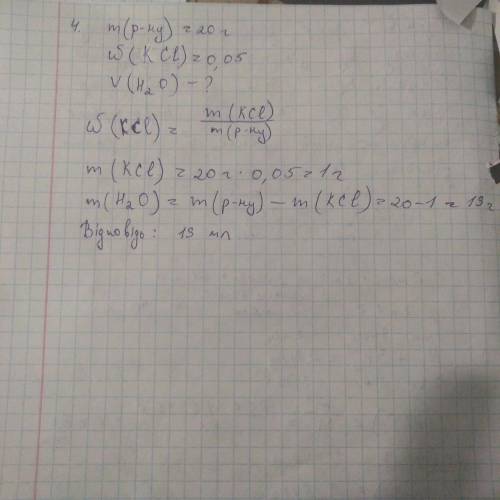 4. m(р-ну) = 20 г
W(KCl) = 0,05
V(H₂O) - ?
W(KCl) = m(KCl) / m(р-ну)
m(KCl) = 20 г · 0,05 = 1 г
m(H₂O) = m(р-ну) - m(KCl) = 20 - 1 = 19 г
Відповідь: 19 мл